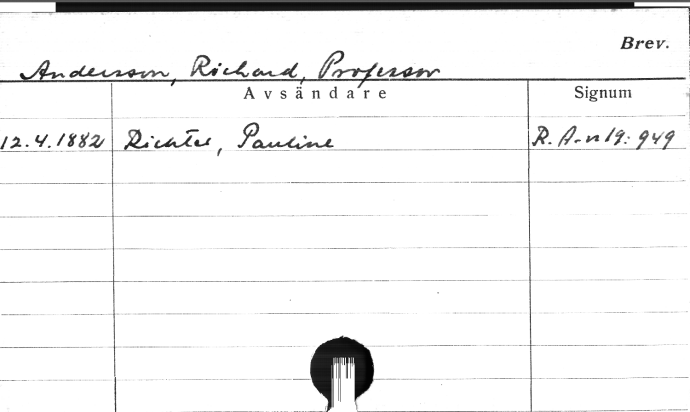 Brev.
Andersson, Richard, Professor
Avsändare Signum
12.4.1882 Richter, Pauline R. A-n 19: 949